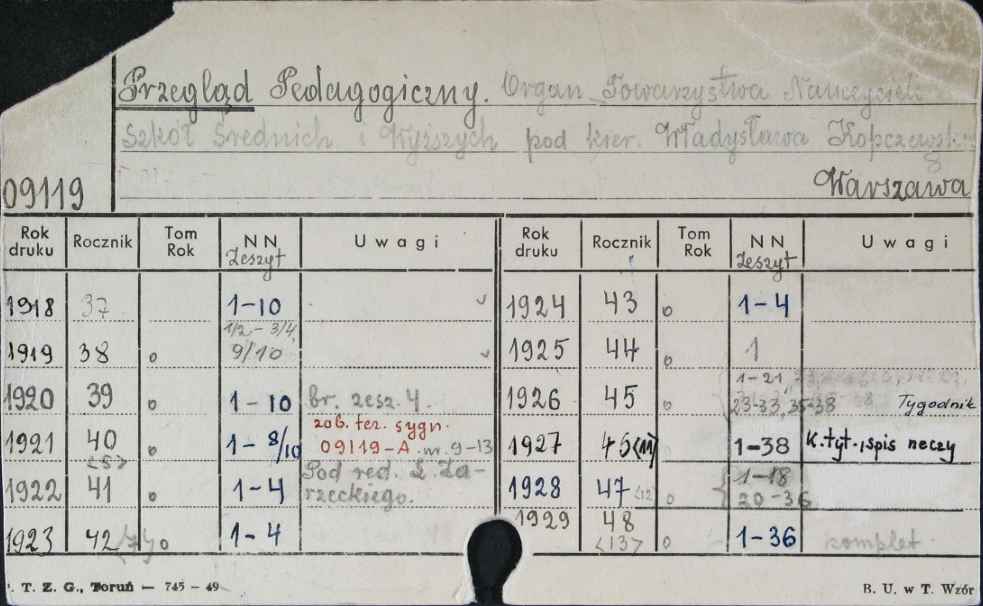 Przegląd Pedagogiczny. Organ Towarzystwa Nauczycieli
Szkół Średnich i Wyższych pod kier. Władysława Kopczewskiego
09119 Warszawa
Rok druku Rocznik Tom Rok NN Zeszyt Uwagi Rok druku Rocznik Tom Rok NN Zeszyt Uwagi
1918 37 1-10 1924 43 o 1-4
1919 38 o 1/2-3/4, 9/10 1925 44 o 1
1920 39 o 1-10 br. zesz. 4. 1926 45 o 1-21, 23-33, 35-38 Tygodnik
1921 40 <5> 1-8/10 zob. też. sygn. 09119-A. nr. 9-13 1927 46 <11> 1-38 K. tyt., spis rzeczy
1922 41 o 1-4 Pod red. L. Zarzeckiego. 1928 47 <12> o 1-18 20-36
1923 42 <7> o 1-4 1929 48 <13> o 1-36 komplet.
T. Z. G., Toruń — 745 - 49 B. U. w T. Wzór